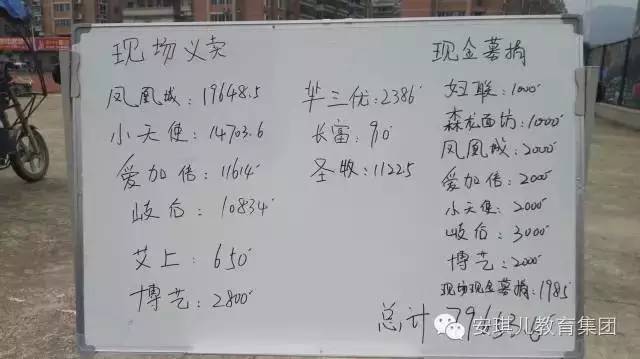 现场义卖
凤凰城：19648.5
小天使：14703.6
爱加倍：11614
岐后：10834
艾上：650
博艺：2800
华三优：2386
长富：90
圣牧：1122.5
现金募捐
妇联：1000
森龙面坊：1000
凤凰城：2000
爱加倍：2000
小天使：2000
岐后：3000
博艺：2000
现场现金募捐：1985
总计
安琪儿教育集团